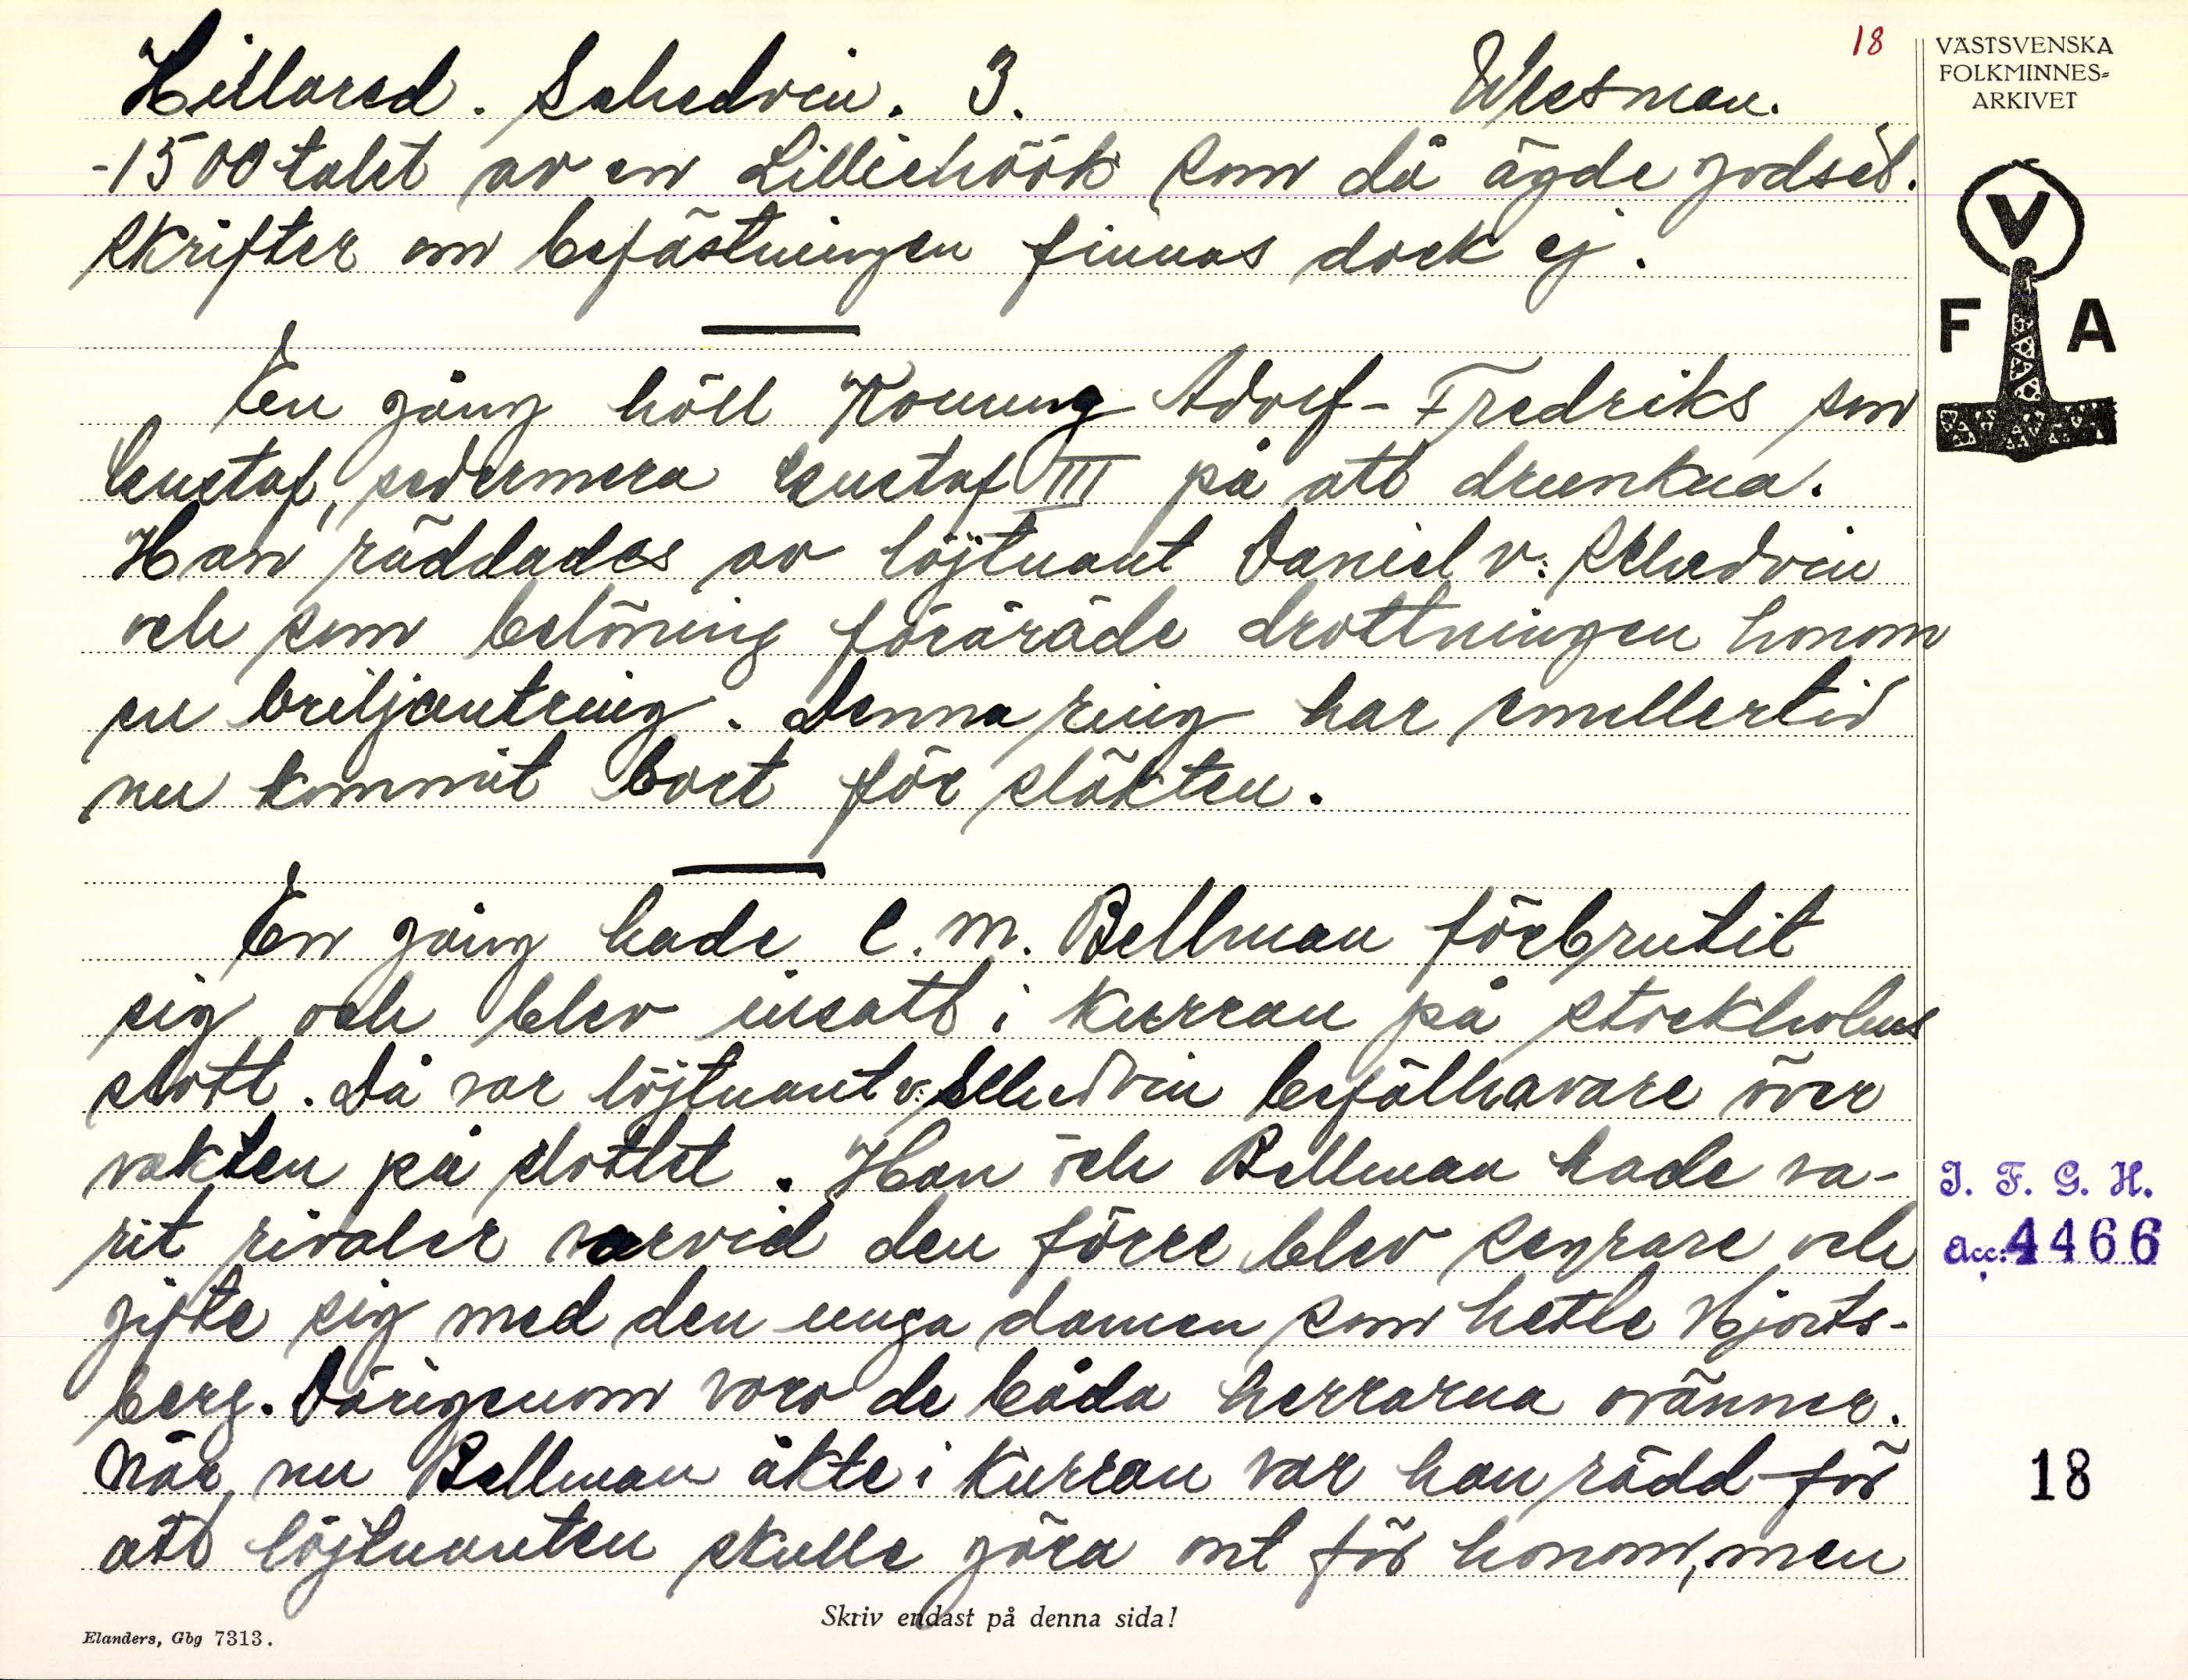 18
Hillared. Schedvin. 3. Wessman.
-1500talet av en Lilliehöök som då ägde godset.
Skrifter om befästningen finnas dock ej.
En gång höll Konung Adolf-Fredriks son
Gustaf, sedermera Gustaf III på att drunkna.
Han räddades av löjtnant Daniel v: Schedvin
och som belöning förärade drottningen honom
en briljantring. Denna ring har emellertid
nu kommit bort för släkten.
En gång hade C. M. Bellman förbrutit
sig och blev insatt i kurran på Stockholms
slott. Då var löjtnant v: Schedvin befälhavare över
vakten på slottet. Han och Bellman hade va-
rit rivaler varvid den förre blev segrare och
gifte sig med den unga damen som hette Hjorts-
berg. Därigenom voro de båda herrarna ovänner.
När nu Bellman åkte i kurran var han rädd för
att löjtnanten skulle göra ont för honom, men
Skriv endast på denna sida!
Elanders, Gbg 7313.
VÄSTSVENSKA
FOLKMINNES-
ARKIVET
V
F A
I. F. G. H.
Acc. 4466
18